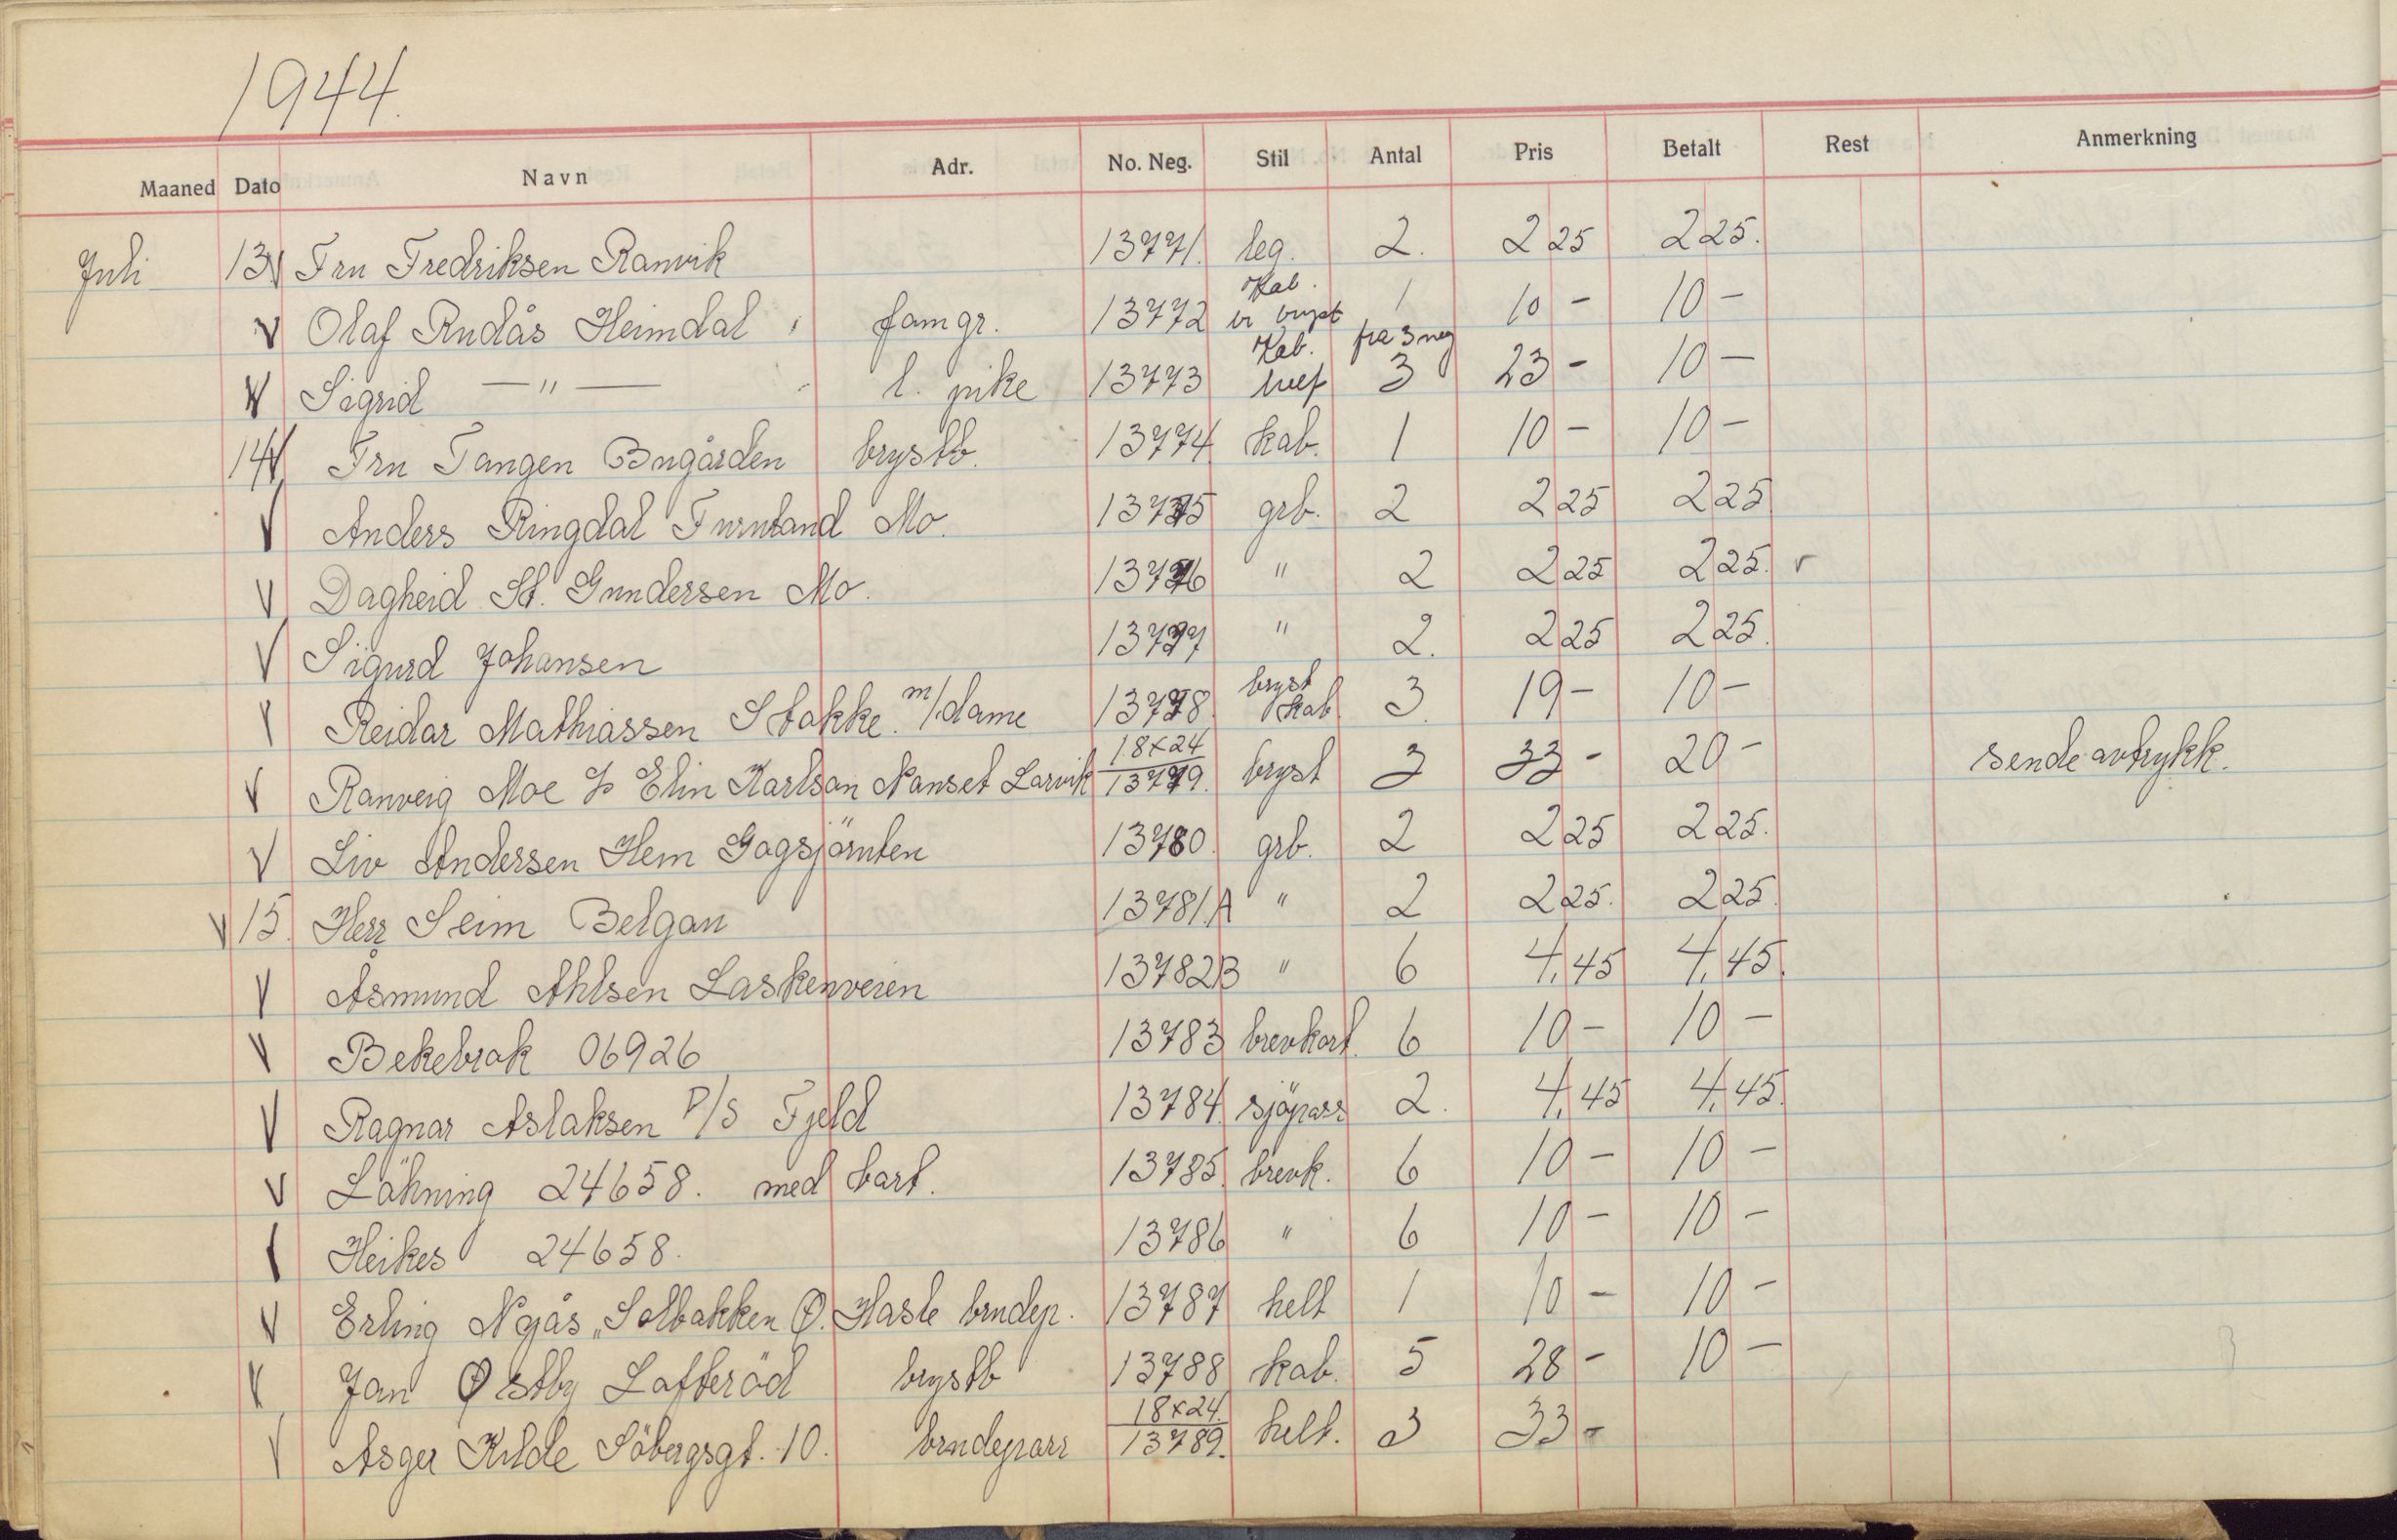 1944.
Maaned Dato Navn Adr. No. Neg. Stil Antal Pris Betalt Rest Anmerkning
Juli 13 V Fru Fredriksen Ranvik 13771. leg. 2. 2 25 2 25.
V Olaf Rudås Heimdal famgr. 13772 Kab. bryst 1 10 - 10 -
V Sigrid —"— l. pike 13773 Kab. fra 3 neg 3 23 - 10 -
14 V Fru Tangen Bugården brystb. 13774 kab. 1 10 - 10 -
V Anders Ringdal Furutand Mo. 13775 grb. 2 2 25 2 25
V Dagheid St. Gundersen Mo. 13776 " 2 2 25 2 25. v
V Sigurd Johansen 13777 " 2. 2 25 2 25.
V Reidar Mathiassen Stokke. m/dame 13778. bryst kab. 3. 19 - 10 -
V Ranveig Moe Elin Karlson Nanset Larvik 18x24 13779. bryst 3 33 - 20 - sende avtrykk.
V Liv Andersen Hem Gogsjörnten 13780. grb. 2 2 25 2 25.
V 15. Herr Seim Belgau 13781.A " 2 2 25. 2 25.
V Åsmund Ahlsen Laskenveien 13782B " 6 4,45 4,45.
V Bekebrok 06926 13783 brevkort. 6 10 - 10 -
V Ragnar Aslaksen D/S Fjeld 13784. sjöpass 2. 4,45 4,45.
V Löhning 24658. med bart. 13785. brevk. 6 10 - 10 -
V Heikes 24658. 13786 " 6 10 - 10 -
V Erling Nyås „Solbakken Ø. Hasle brudep. 13787 helt 1 10 - 10 -
V Jan Østby Lofteröd brystb 13788 kab. 5 28 - 10 -
V Asger Kilde Söbergsgt. 10. brudeparr 18x24. 13789. helt. 3 33 -